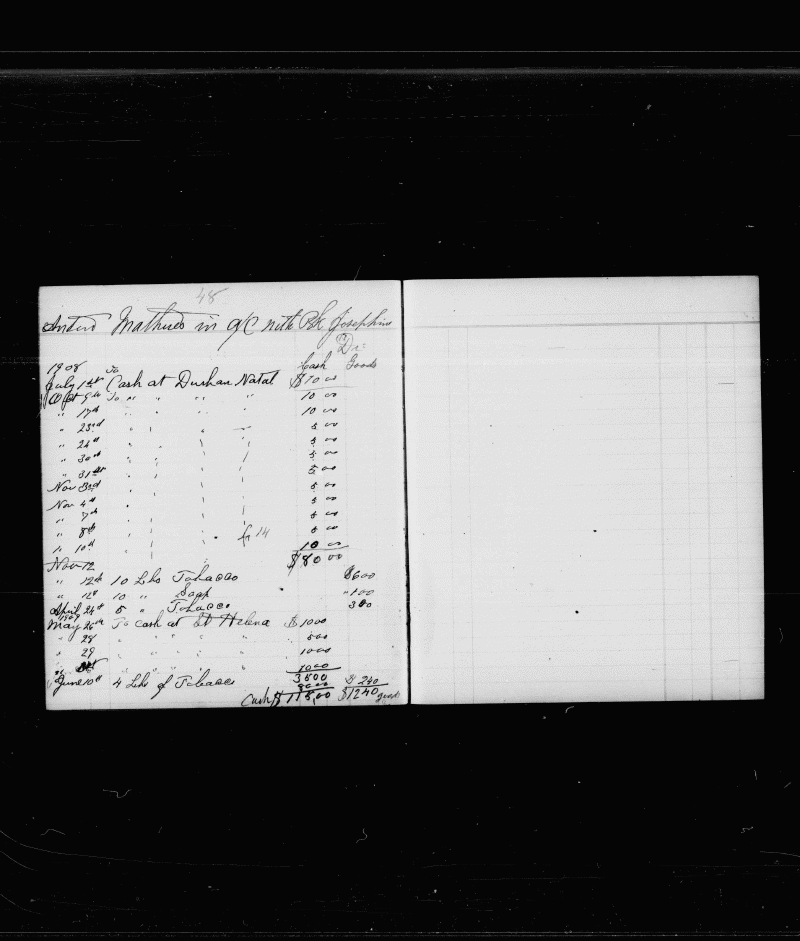 48
in a/c with Bk Josephine
Dr.
1908 To Cash Goods
July 1st Cash at Durban Natal $10 00
Oct 9th To " " " " " 10 00
" 17th " " " " 10 00
" 23rd " " " " 5 00
" 24th " " " " 5 00
" 30th " " " " 5 00
" 31st " " " " 5 00
Nov 3rd " " " 5 00
Nov 4th " " " 5 00
" 7th " " " 5 00
" 8th " " " 14 5 00
" 10th " " " 10 00
Nov 12 $80 00
" 12th 10 Lbs Tobacco $6 00
" 12th 10 " Soap " 1 00
April 24th 5 " Tobacco 3 00
1909
May 26th To Cash at St Helena $ 10 00
" 28 " " " " " 5 00
" 29 " " " " 10 00
" " " " " 10 00
35 00
June 10th 4 Lbs of Tobacco 80 00 $ 2 40
Cash $ 115,00 $12 40 goods